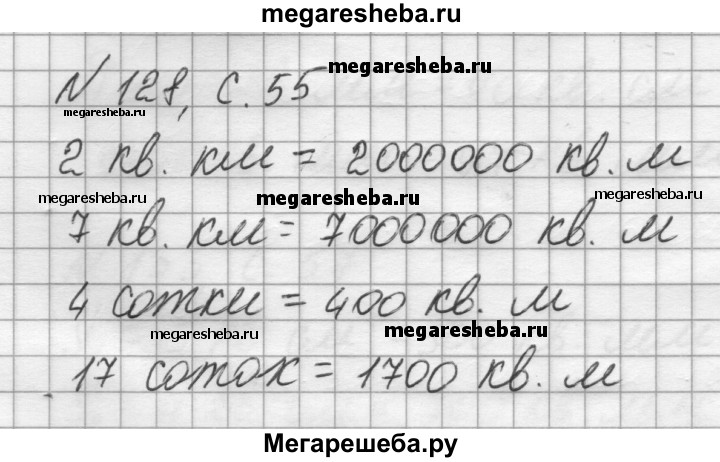 megaresheba.ru
N 128, с. 55
megaresheba.ru
megaresheba.ru
2 кв. км = 2000000 кв. м
megaresheba.ru
megaresheba.ru
megaresheba.ru
7 кв. км = 7000000 кв. м
4 сотки = 400 кв. м
megaresheba.ru
megaresheba.ru
17 соток = 1700 кв. м
Мегарешеба.ру